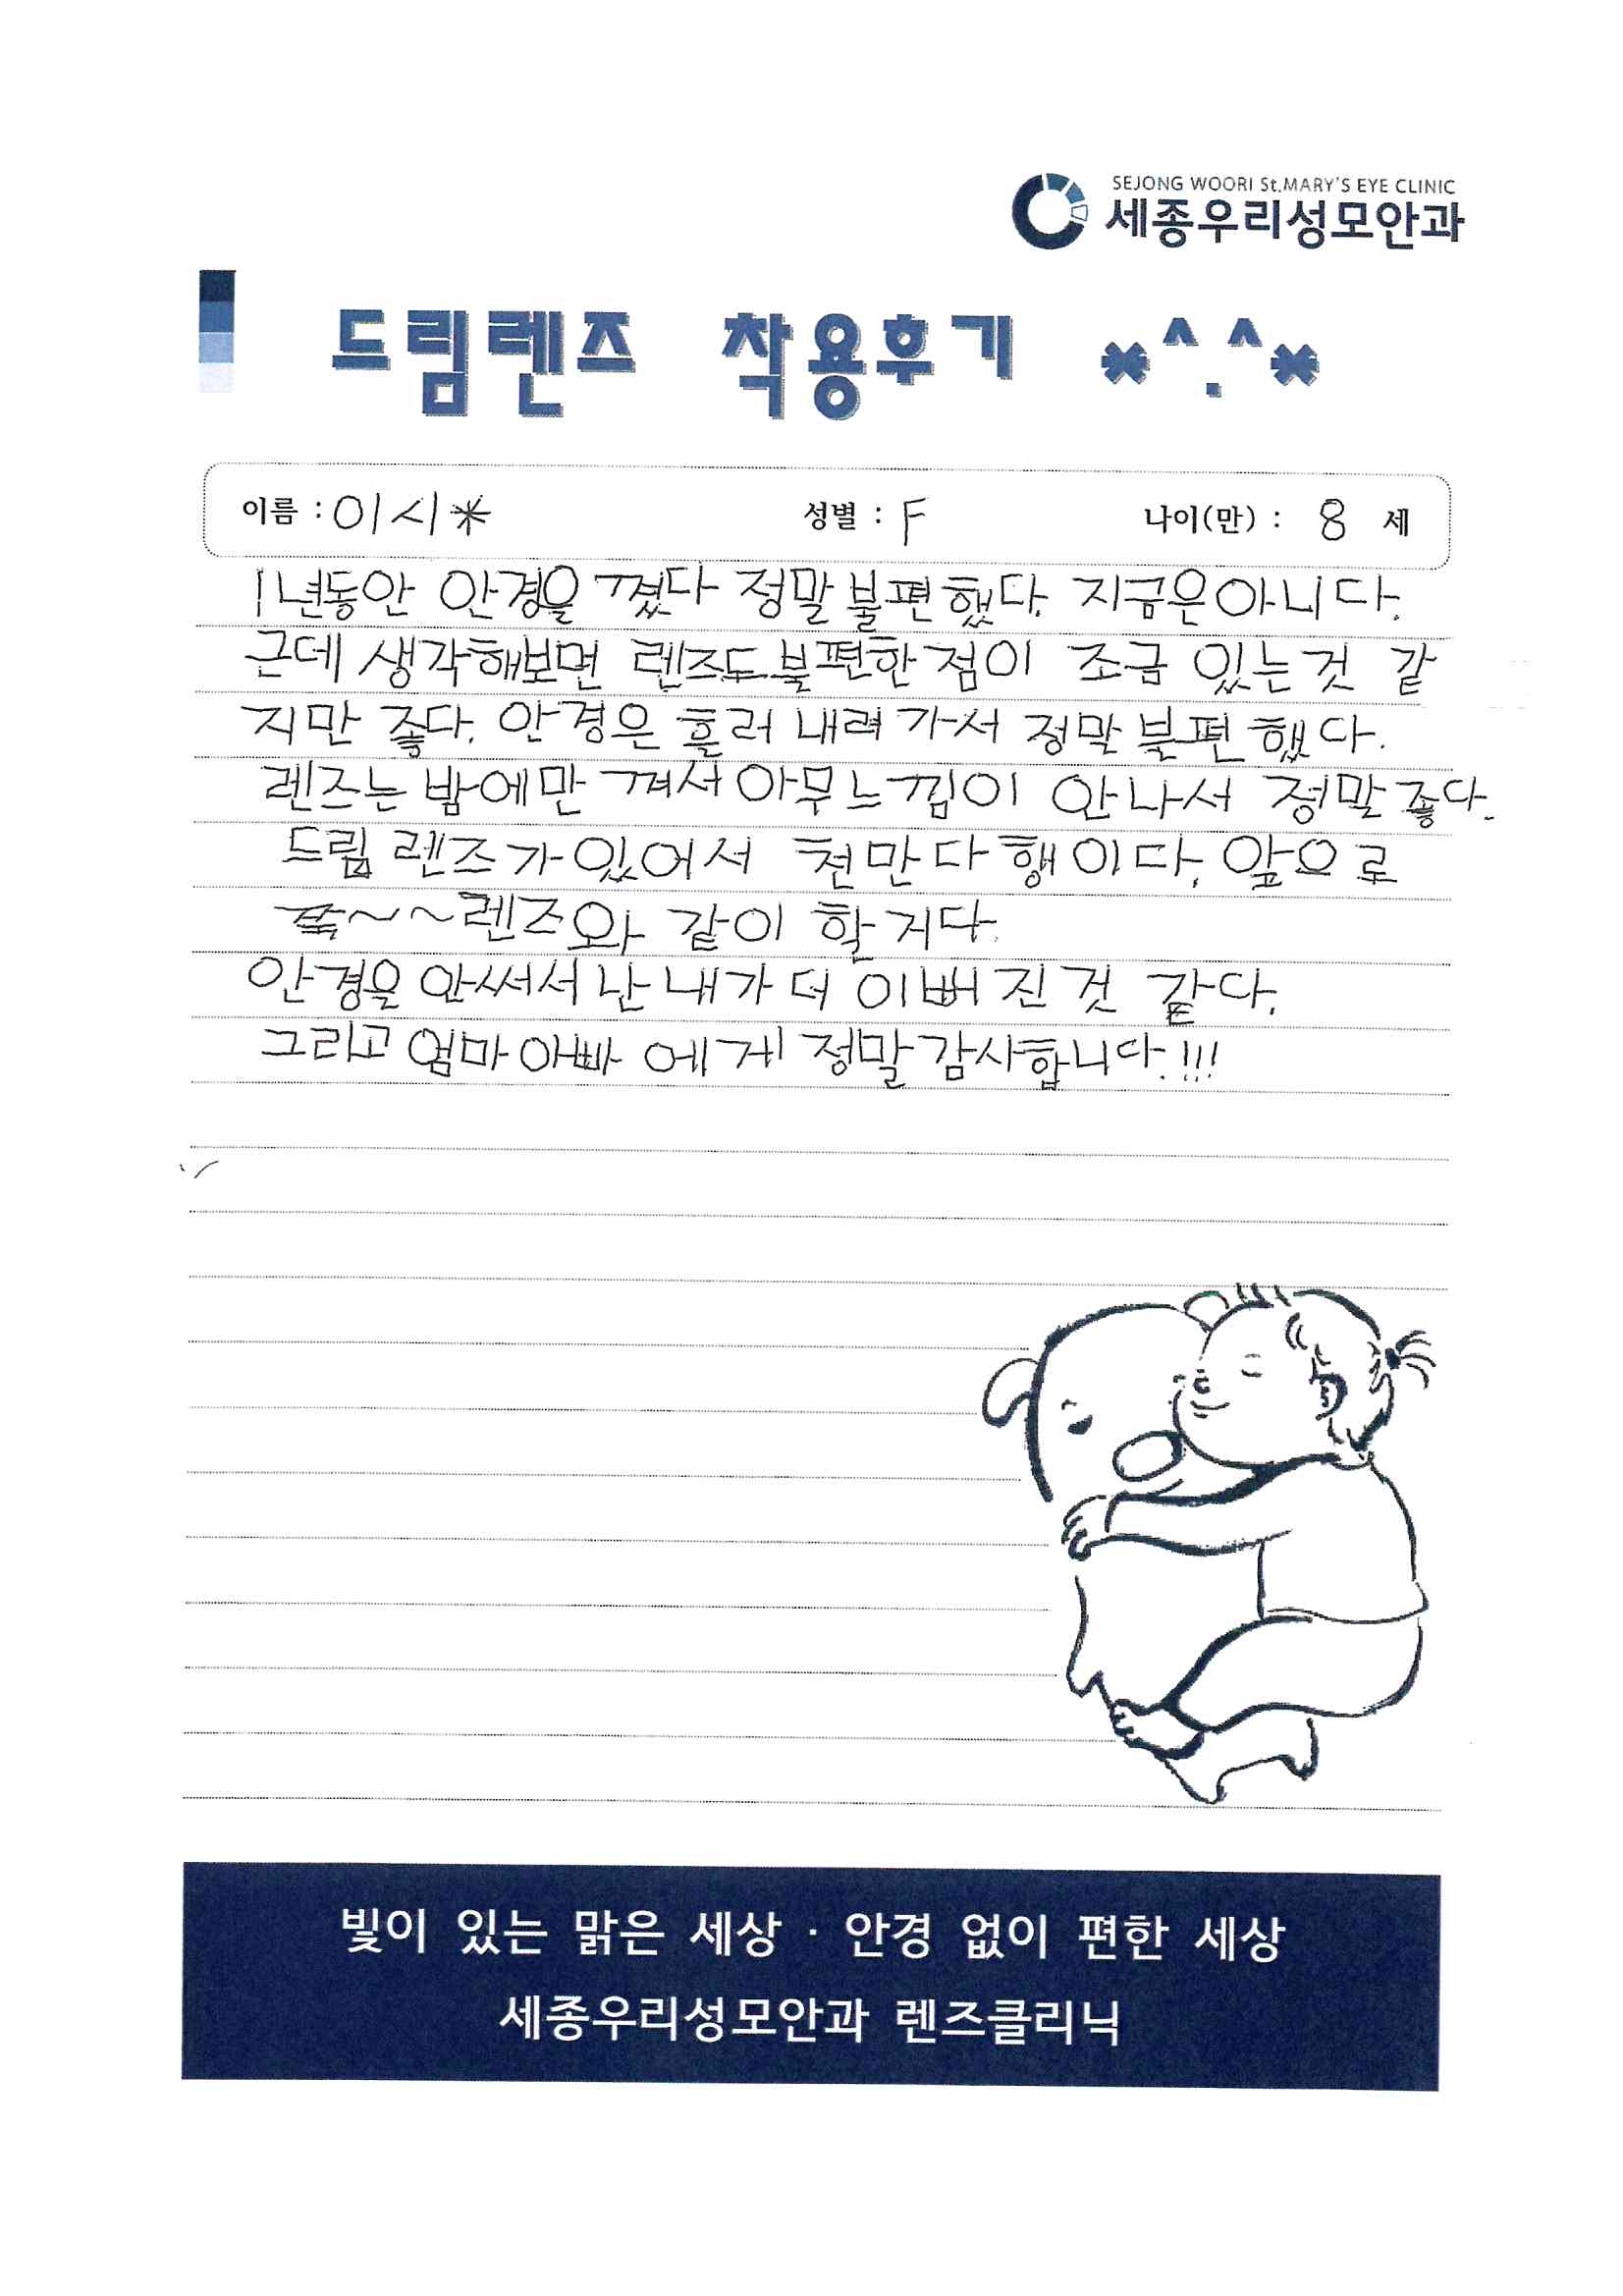 SEJONG WOORI St.MARY'S EYE CLINIC
세종우리성모안과
드림렌즈 착용후기 *^.^*
이름 : 이시* 성별 : F 나이(만) : 8 세
1년동안 안경을 꼈다 정말 불편했다. 지금은 아니다.
근데 생각해보면 렌즈도 불편한 점이 조금 있는 것 같
지만 좋다. 안경은 흘러 내려 가서 정말 불편 했다.
렌즈는 밤에만 껴서 아무 느낌이 안 나서 정말 좋다.
드림 렌즈가 있어서 천만 다행이다. 앞으로
쭉~~렌즈와 같이 할 거다.
안경을 안써서 난 내가 더 이뻐 진 것 같다.
그리고 엄마 아빠 에게 정말 감사합니다.!!!
빛이 있는 맑은 세상 · 안경 없이 편한 세상
세종우리성모안과 렌즈클리닉